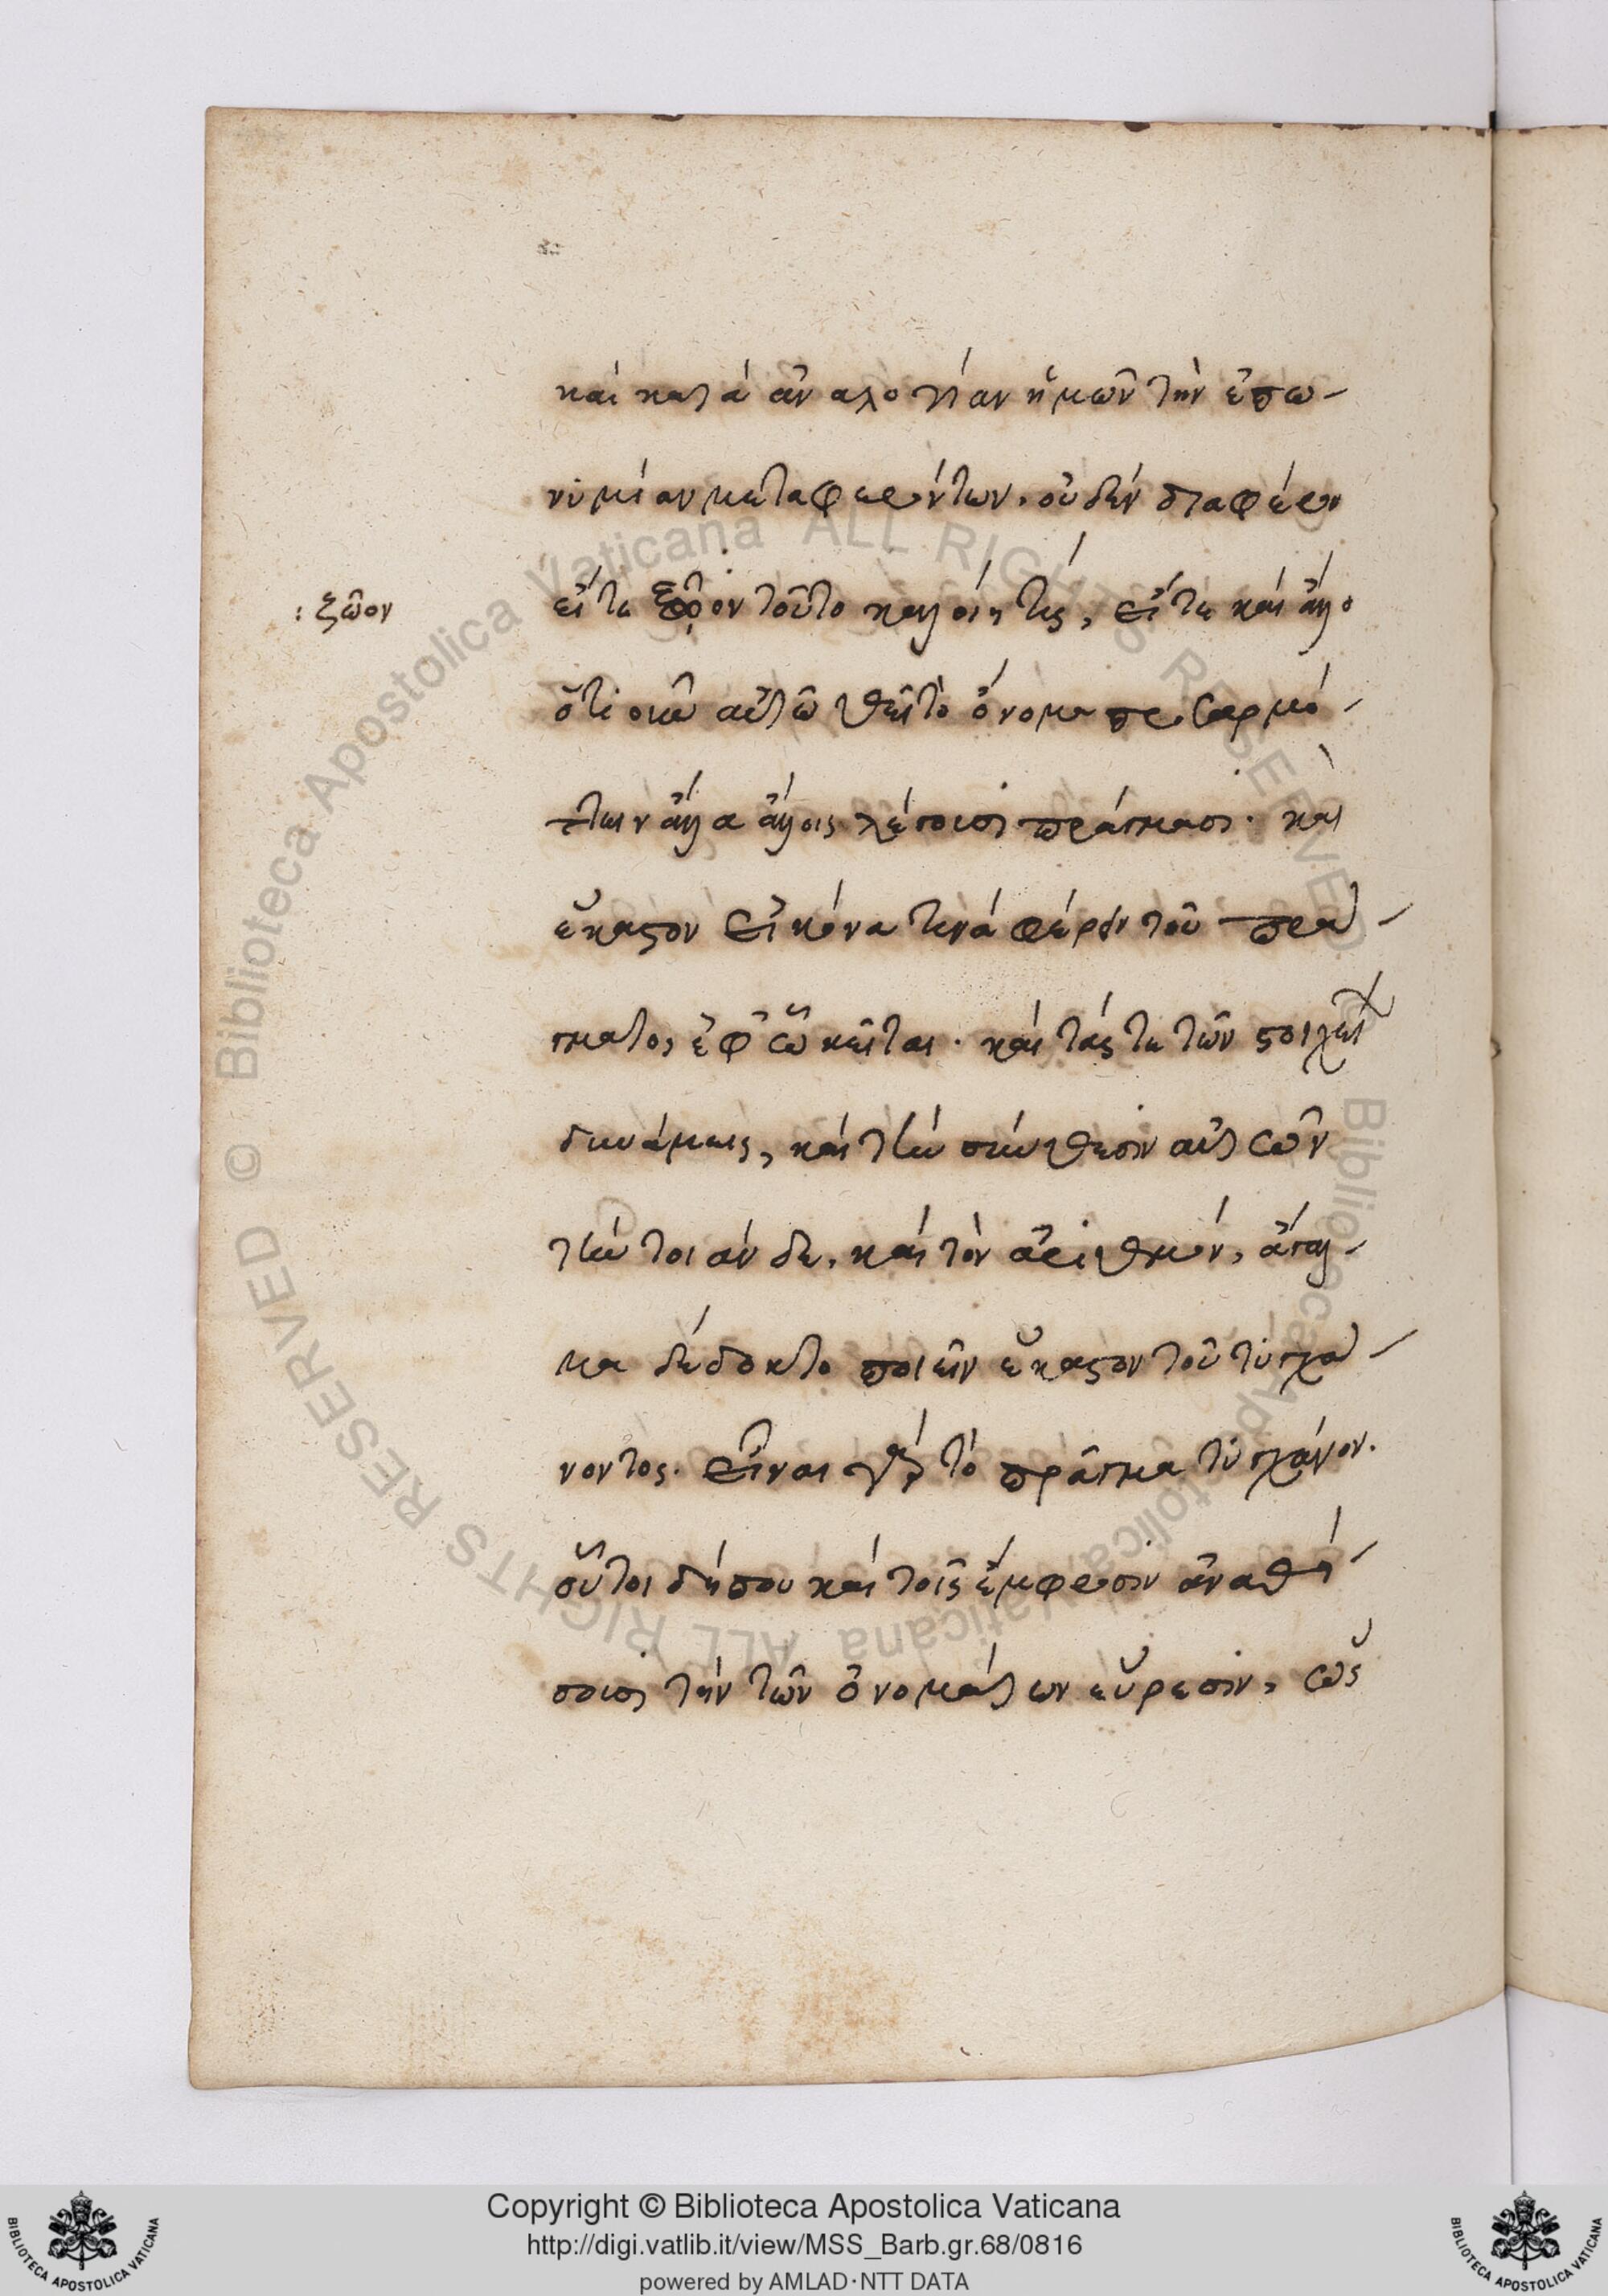 καὶ κατὰ ἀναλογίαν ἡμῶν τὴν ἐπω-
νυμίαν μεταφερόντων. οὐδὲν διαφέρον
: ζῶον
εἴτε ξῷον τοῦτο καλοίη τίς, εἴτε καὶ ἄλλο
ὅτι οὖν αὐτῶ θεῖτο ὄνομα προσαρμό-
ττειν ἄλλα ἄλλοις λέγουσι πράγμασι. καὶ
ἕκαστον εἰκόνα τινὰ φέρειν τοῦ πρά-
γματος ἐφ' ὧ κεῖται. καὶ τάς τε τῶν στοιχείων
δυνάμεις, καὶ τὴν σύνθεσιν αὐτῶν
τὴν τοιάνδε, καὶ τὸν ἀριθμὸν, ἄγαλ-
μα δέδοκτο ποιεῖν ἕκαστον τοῦ τυγχά-
νοντος. εἶναι γὰρ τὸ πρᾶγμα τυγχάνον.
οὗτοι δήπου καὶ τοῖς ἔμφροσιν ἀναθή-
σουσι τὴν τῶν ὀνομάτων εὕρεσιν, ὡς
Copyright © Biblioteca Apostolica Vaticana
http://digi.vatlib.it/view/MSS_Barb.gr.68/0816
powered by AMLAD·NTT DATA
BIBLIOTECA APOSTOLICA VATICANA
BIBLIOTECA APOSTOLICA VATICANA
© Biblioteca Apostolica Vaticana ALL RIGHTS RESERVED
© Biblioteca Apostolica Vaticana ALL RIGHTS RESERVED